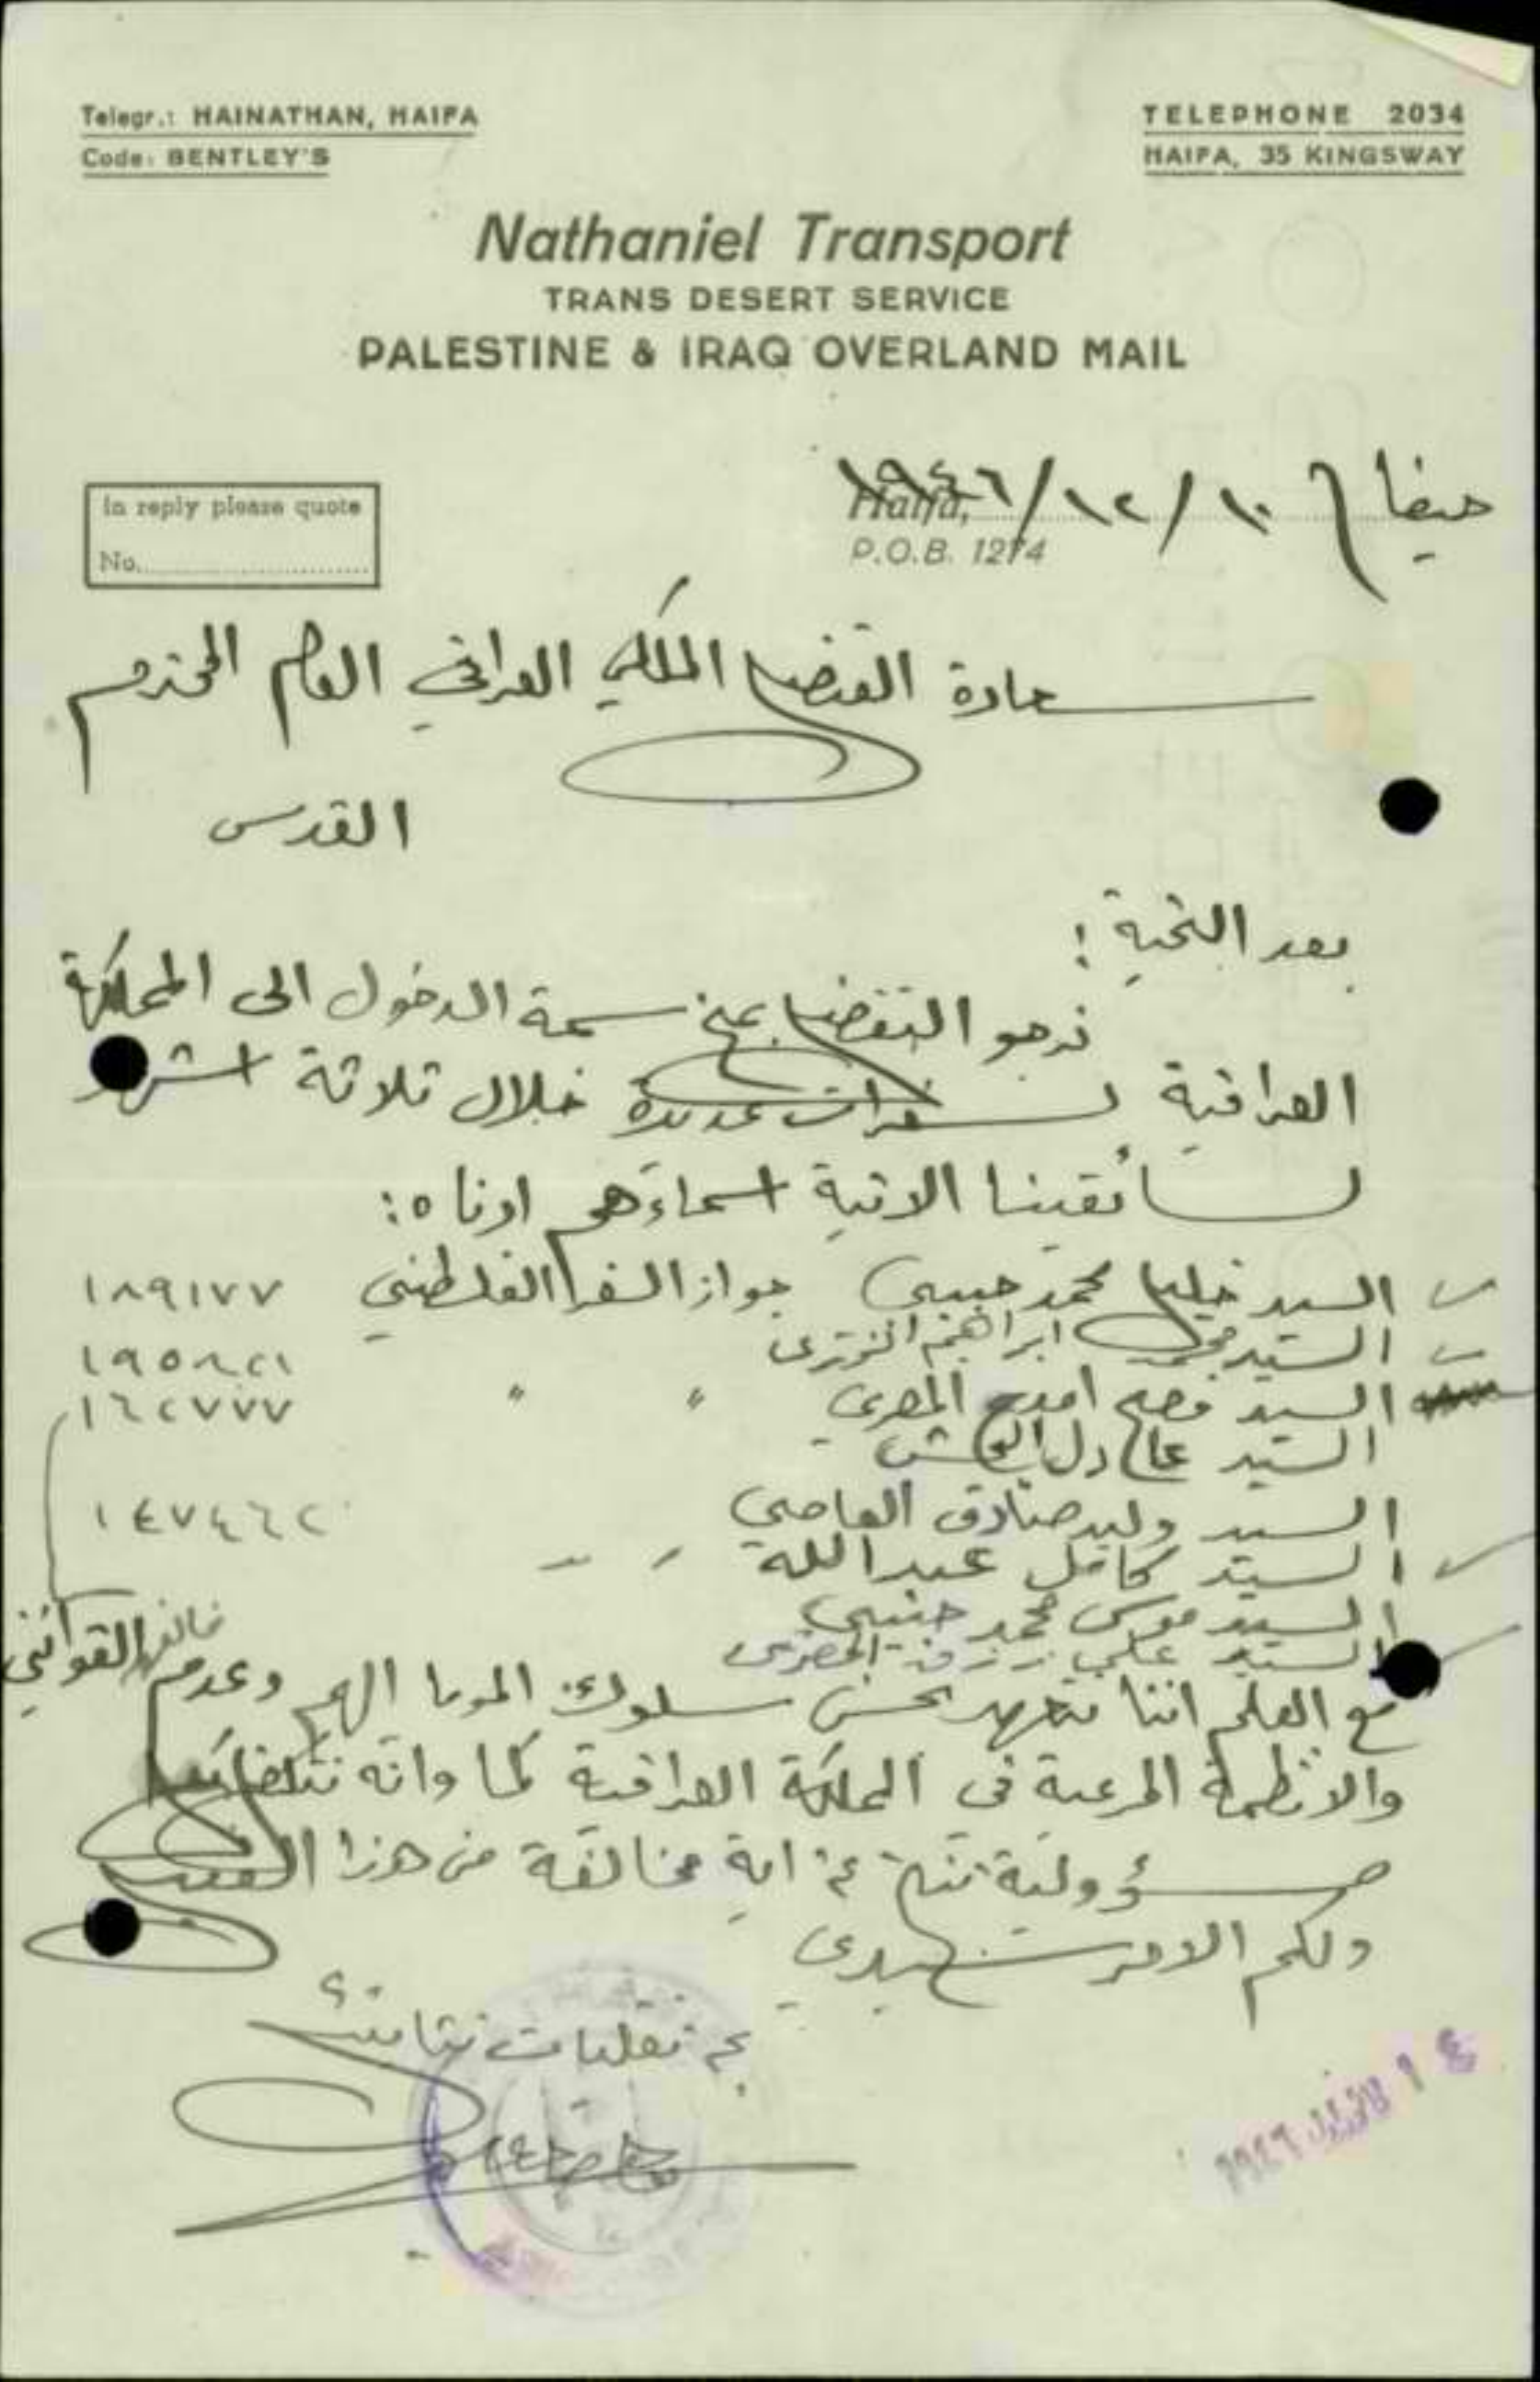 Telegr.: HAINATHAN, HAIFA
Code: BENTLEY'S
TELEPHONE 2034
HAIFA, 35 KINGSWAY
Nathaniel Transport
TRANS DESERT SERVICE
PALESTINE & IRAQ OVERLAND MAIL
In reply please quote
No.
Haifa,
P.O.B. 1274
حيفا ١٠/١٢/١٩٤٦
سعادة القنصل الملكي العراقي العام المحترم
القدس
بعد التحية :
نرجو التفضل بمنح سمة الدخول الى المملكة
العراقية لسفرات عديدة خلال ثلاثة اشهر
لسائقينا الاتية اسماءهم ادناه:
السيد خليل محمد حبيبي جواز السفر الفلسطيني ١٨٩١٧٧
السيد ابراهيم ١٩٥٨٢١
السيد المصري " " ١٦٢٧٧٧
السيد عادل
السيد وليد صادق العاصي ١٤٧٤٦٢
السيد كامل عبدالله
السيد موسى محمد حبيبي
السيد علي
مع العلم اننا نتعهد بحسن سلوك الموما اليهم وعدم مخالفة القوانين
والانظمة المرعية في المملكة العراقية كما وانه نتكفل بكل
مسؤولية تنتج عن اية مخالفة من هذا القبيل
ولكم الامر سيدي
عن نقليات نتانيل
١٤ ١٩٤٦